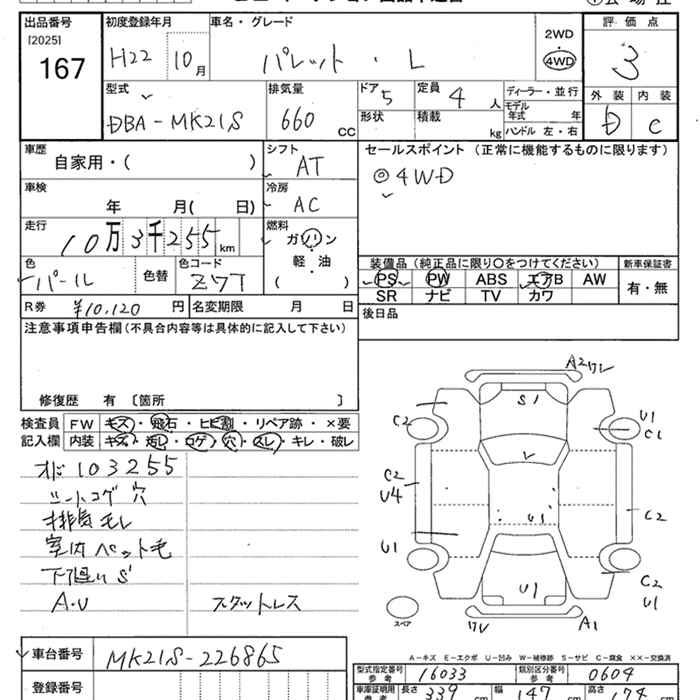 出品番号 初度登録年月 車名・グレード 評価点
[2025] 167 H22 10月 パレット・L 2WD 4WD 3
型式 排気量 ドア 5 定員 4人 ディーラー・並行 外装 内装
DBA-MK21S 660 CC 形状 積載 kg モデル年式 年 ハンドル 左・右 D C
車歴 自家用・( ) シフト AT セールスポイント (正常に機能するものに限ります)
車検 年 月( 日) 冷房 AC ◎4WD
走行 10万3千255km 燃料 ガソリン 軽・油 ( )
色 パール 色替 色コード Z7T 装備品(純正品に限り○をつけてください) 新車保証書
PS PW ABS エアB AW 有・無
SR ナビ TV カワ
R券 ¥10,120円 名変期限 月 日 後日品
注意事項申告欄(不具合内容等は具体的に記入して下さい)
修復歴 有 〔箇所 〕
検査員 FW キズ・飛石・ヒビ割・リペア跡・×要
記入欄 内装 キズ・汚し・コゲ・穴・スレ・キレ・破レ
103255
シートコゲ 穴
排気モレ
室内ペット毛
下廻りS
A・U スタットレス
A2ワレ
S1
C2 U1 C1
C2 U4 U1 C2
U1 U1 C2 U1
スペア ワレ A1
A-キズ E-エクボ U-凹み W-補修跡 S-サビ C-腐食 ××-交換済
車台番号 MK21S-226865
型式指定番号 参考 16033 類別区分番号 参考 0604
登録番号 車庫証明用 参考 長さ 339 cm 幅 147 cm 高さ 174 cm